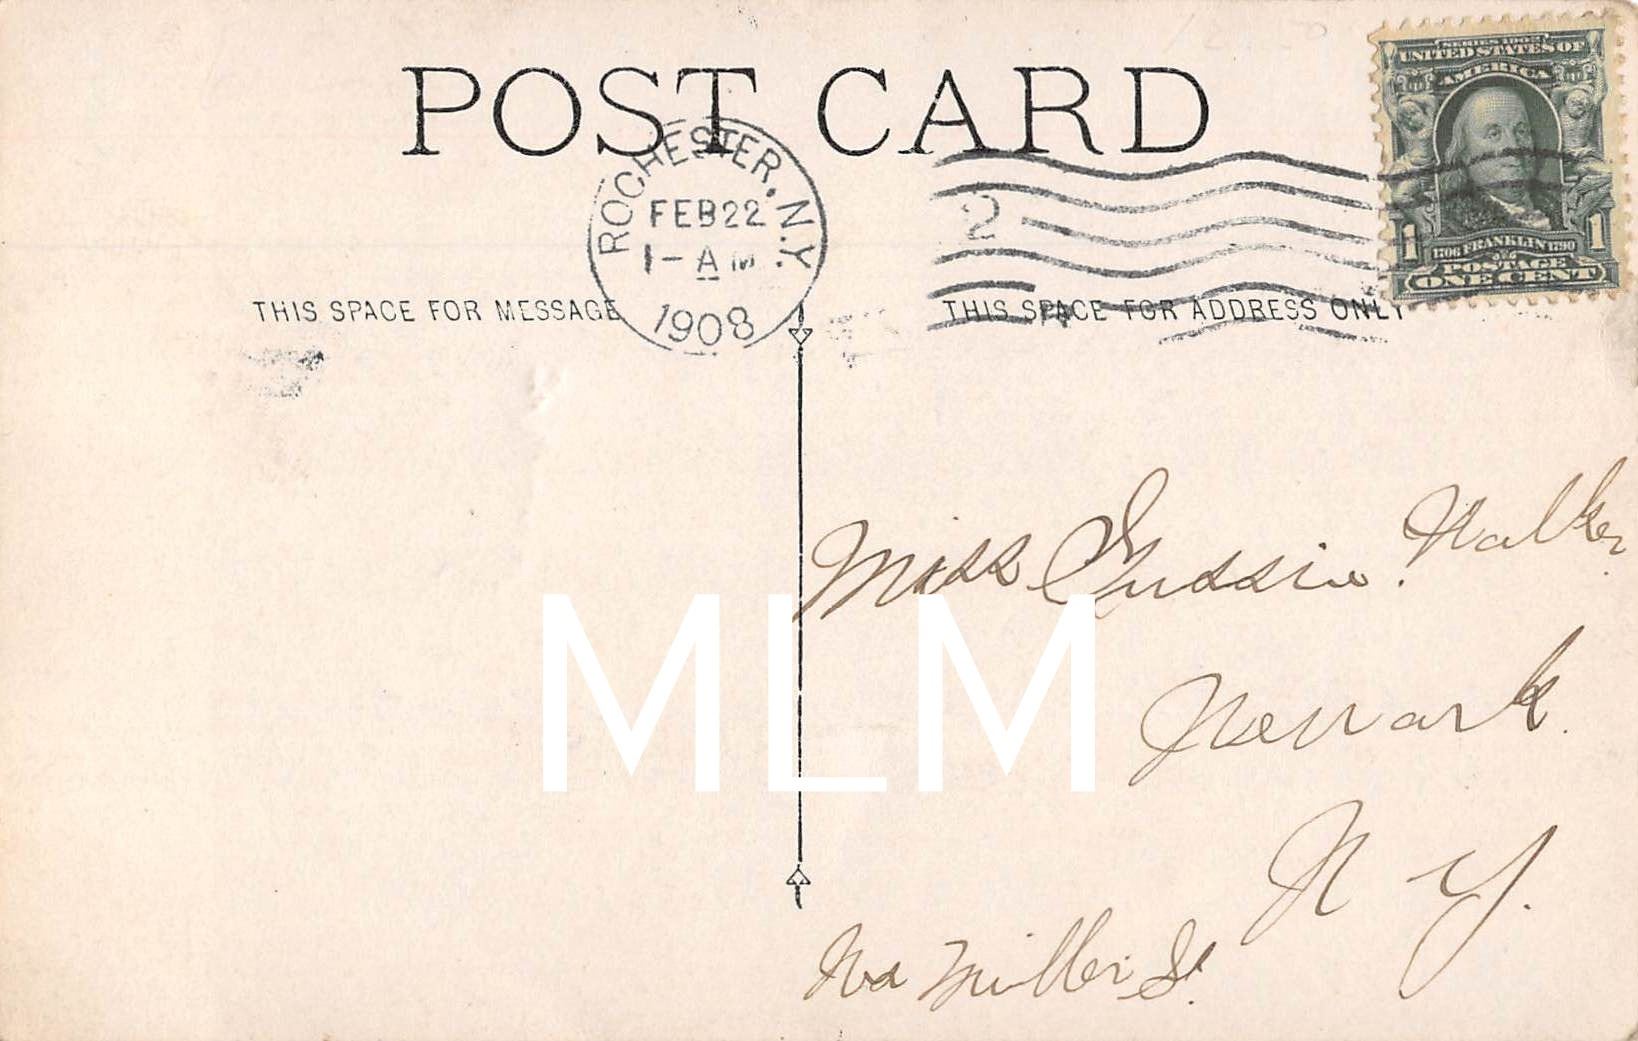 POST CARD
SERIES 1902
UNITED STATES OF
AMERICA
1 1706 FRANKLIN 1790 1
POSTAGE
ONE CENT
ROCHESTER, N.Y.
FEB 22
1-AM
1908
2
THIS SPACE FOR MESSAGE
THIS SPACE FOR ADDRESS ONLY
Miss Gussie Walker.
Newark.
N Y.
Miller St.
MLM